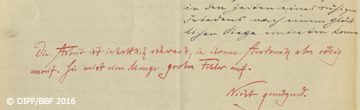 in den Zeiten eines ruhigen
Friedens nach einem glück-
lichen Kriege
Die Arbeit ist inhaltlich schwach, in ihrem Ausdruck aber völlig
unreif. Sie weist eine Menge grober Fehler auf.
Nicht genügend.
© DIPF/BBF 2016